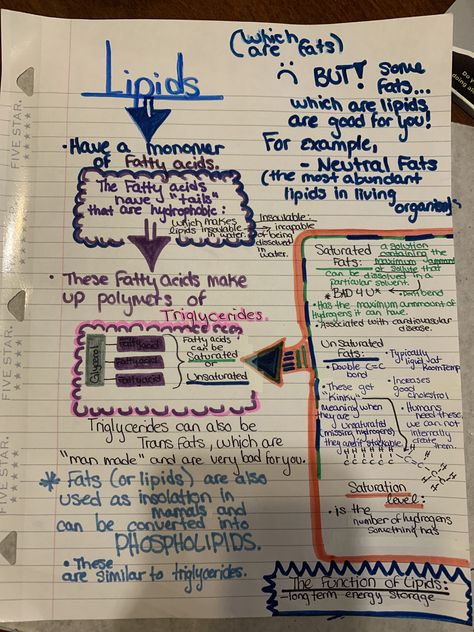 Lipids
(which are fats)
BUT! Some
fats...
which are lipids
are good for you!
For example,
- Neutral Fats
(the most abundant
lipids in living
organisms)
• Have a monomer
of Fatty acids.
The Fatty acids
have "tails"
that are hydrophobic:
which makes
lipids insoluable
in water.
Insoluable:
incapable
of being
dissolved
in water.
• These Fatty acids make
up polymers of
Triglycerides.
Glycerol
Fattyacid
Fattyacid
Fattyacid
Fatty acids
can be
Saturated
or
Unsaturated
Triglycerides can also be
Trans Fats, which are
"man made" and are very bad for you.
* Fats (or lipids) are also
used as insolation in
mamals and
can be converted into
PHOSPHOLIPIDS.
• These
are similar to triglycerides.
Saturated
Fats:
a solution
containing the
maximum
of solute that
can be dissolved in a
particular solvent.
* "BAD 4 U"
bend
• Has the maximum ammount of
hydrogens it can have.
• Associated with cardiovascular
disease.
Unsaturated
Fats:
• Double C=C
bond
• These get
"Kinky"
Meaning when
they are
unsaturated
(missing hydrogens)
they arent stackable.
• Typically
liquid at
RoomTemp
• Increases
good
cholestrol
• Humans
need these
we can not
internally
create
them.
H H H H H H
C C C C C C
H H H H H H
Saturation
level:
• is the
number of hydrogens
something has
The Function of Lipids:
- longterm energy storage
FIVE STAR.
FIVE STAR.
FIVE STAR.